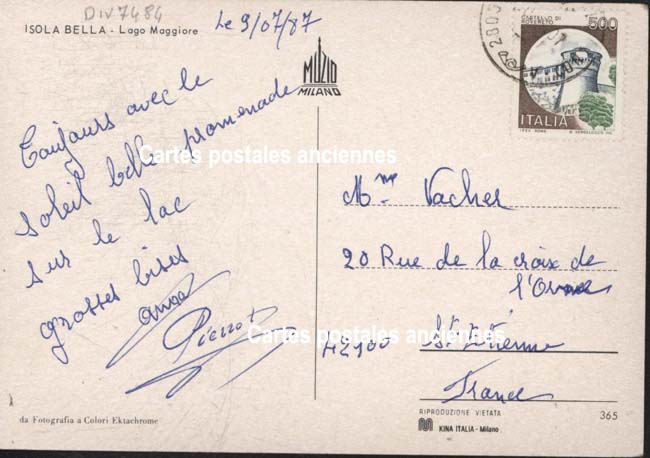 DIV7484
ISOLA BELLA - Lago Maggiore
Le 9/07/87
MUZIO
MILANO
CASTELLO DI
ROVERETO
500
ITALIA
Toujours avec le
soleil belle promenade
sur le lac
grosses bises
Pierrot
Cartes postales anciennes
Mme Vacher
20 Rue de la croix de
l'Orme
42100 St Etienne
France
Cartes postales anciennes
da Fotografia a Colori Ektachrome
RIPRODUZIONE VIETATA
KINA ITALIA - Milano
365